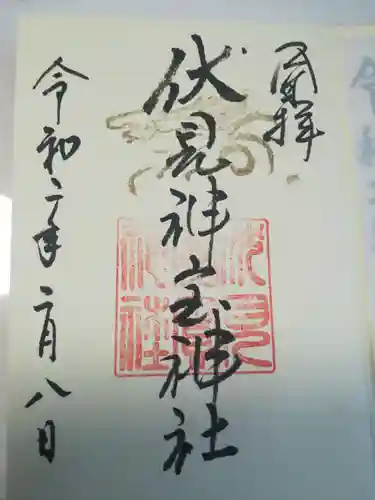 奉拝
伏見神宝神社
令和二年二月八日